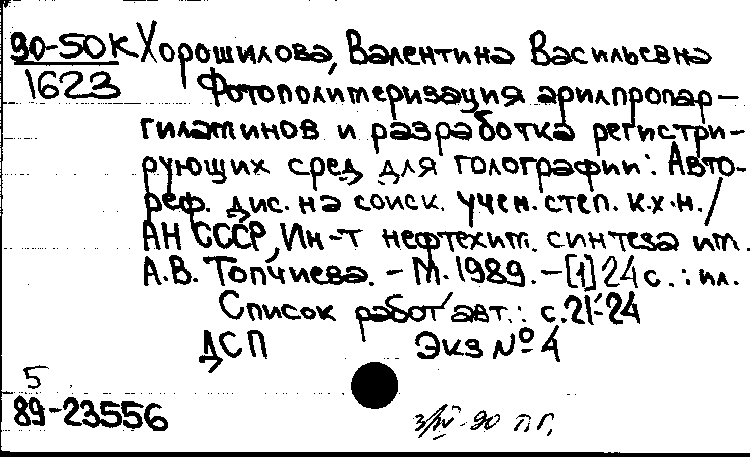 90-50К Хорошилова, Валентина Васильевна
1623 Фотополимеризация арилпропар-
гиламинов и разработка регистри-
рующих сред для голографии: Авто-
реф. дис. на соиск. учен. степ. к.х.н. /
АН СССР, Ин-т нефтехим. синтеза им.
А.В. Топчиева. - М. 1989. - [1] 24 с. : ил.
Список работ авт.: с. 21-24
ДСП Экз № 4
5
89-23556
3/IV-90 П.Г.